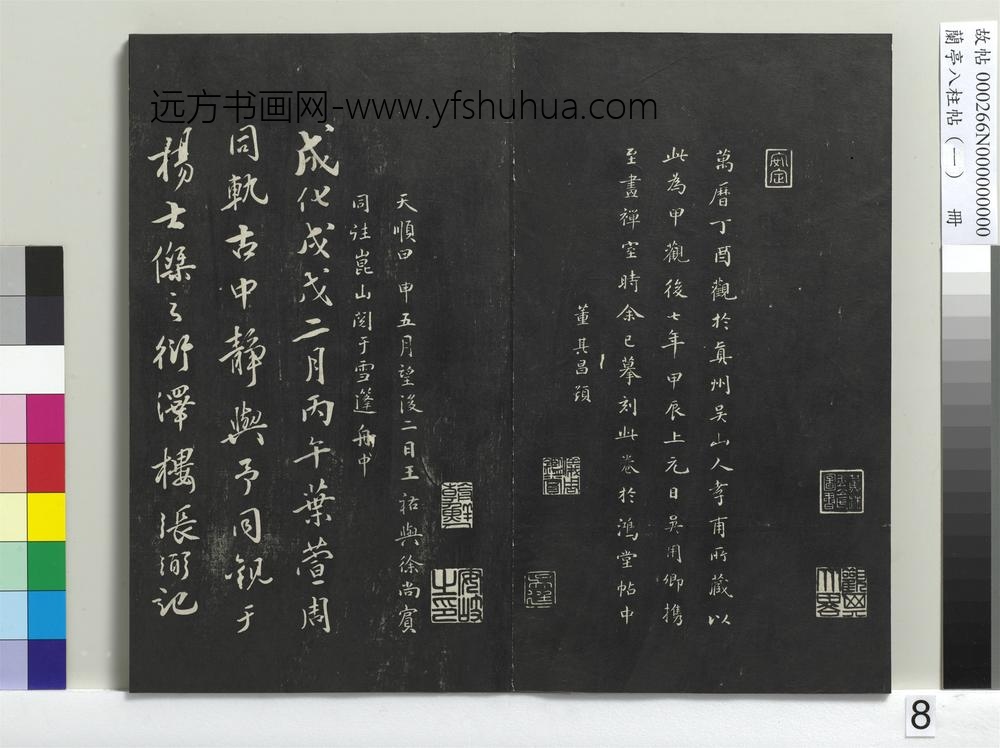 故帖 000266N000000000
蘭亭八柱帖（一） 冊
远方书画网-www.yfshuhua.com
安定
萬曆丁酉觀於真州吳山人孝甫所藏以
此為甲觀後七年甲辰上元日吳用卿攜
至畫禪室時余已摹刻此卷於鴻堂帖中
董其昌題
安岐
之印
天順甲申五月望後二日王祐與徐尚賓
同往崑山閱于雪篷舟中
成化戊戌二月丙午葉萱周
同軌古中靜與予同觀于
楊士傑之衍澤樓張弼記
8